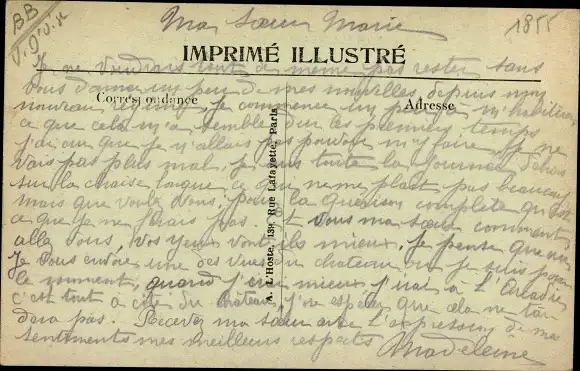 BB
V. D'Oise
1855
Ma sœur Marie
IMPRIMÉ ILLUSTRÉ
Je ne voudrais tout de même pas rester sans
vous donner un peu de mes nouvelles, depuis mon
Correspondance
Adresse
nouveau je commence un peu à m'habituer
ce que cela m'a semblé dur les premiers temps
que je n'allais pas pouvoir m'y faire. Je ne
vais pas plus mal, je suis toute la journée dehors
sur la chaise longue ce qui ne me plaît pas beaucoup
mais que voulez vous, pour la guérison complète
ce que je ne ferais pas. Et vous ma sœur comment
allez vous, vos yeux vont ils mieux, je pense que oui
Je vous envoie une des vues du château où je suis pour
le moment, quand j'irai mieux j'irai à l'
c'est tout à côté du château, j'ose espérer que cela ne tar
dera pas. Recevez ma sœur avec l'expression de mes
sentiments mes meilleurs respects
Madeleine
A. L'Hoste, 139, Rue Lafayette, Paris